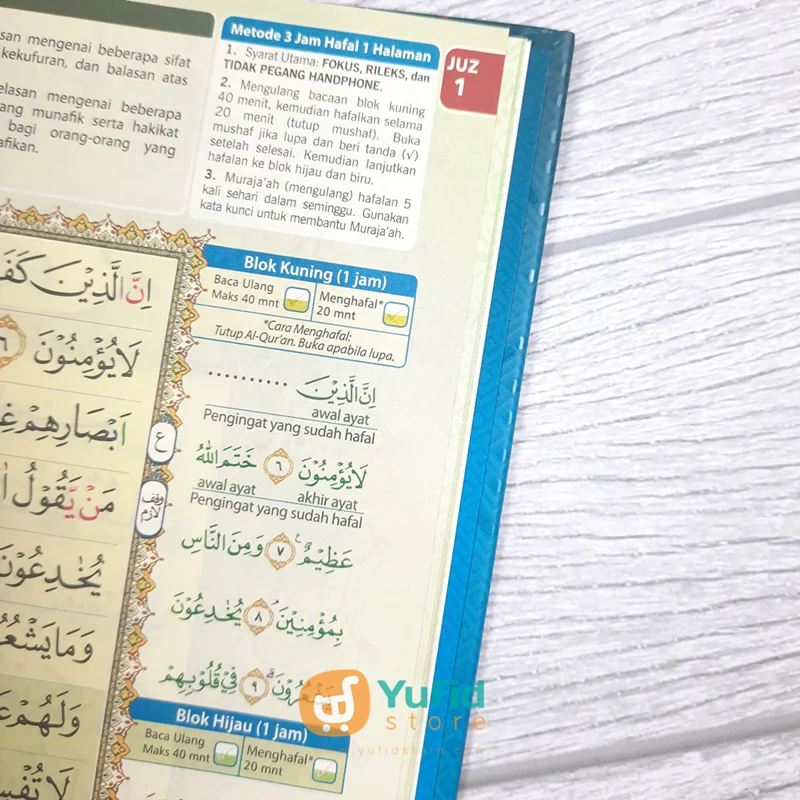 san mengenai beberapa sifat
kekufuran, dan balasan atas
elasan mengenai beberapa
ang munafik serta hakikat
bagi orang-orang yang
afikan.
Metode 3 Jam Hafal 1 Halaman
1. Syarat Utama: FOKUS, RILEKS, dan
TIDAK PEGANG HANDPHONE.
2. Mengulang bacaan blok kuning
40 menit, kemudian hafalkan selama
20 menit (tutup mushaf). Buka
mushaf jika lupa dan beri tanda (√)
setelah selesai. Kemudian lanjutkan
hafalan ke blok hijau dan biru.
3. Muraja'ah (mengulang) hafalan 5
kali sehari dalam seminggu. Gunakan
kata kunci untuk membantu Muraja'ah.
JUZ
1
اِنَّ الَّذِيْنَ كَفَ
لَا يُؤْمِنُوْنَ ٦
اَبْصَارِهِمْ غِ
مَنْ يَّقُوْلُ اٰ
يُخٰدِعُوْنَ
وَمَا يَشْعُ
وَلَهُمْ عَ
لَا تُفْسِ
ع
وقف
لازم
Blok Kuning (1 jam)
Baca Ulang
Maks 40 mnt
Menghafal*
20 mnt
*Cara Menghafal:
Tutup Al-Qur'an. Buka apabila lupa.
اِنَّ الَّذِيْنَ ..........
awal ayat
Pengingat yang sudah hafal
لَا يُؤْمِنُوْنَ ٦ خَتَمَ اللّٰهُ
awal ayat akhir ayat
Pengingat yang sudah hafal
عَظِيْمٌ ࣖ ٧ وَمِنَ النَّاسِ
بِمُؤْمِنِيْنَۘ ٨ يُخٰدِعُوْنَ
يَشْعُرُوْنَۗ ٩ فِيْ قُلُوْبِهِمْ
Blok Hijau (1 jam)
Baca Ulang
Maks 40 mnt
Menghafal*
20 mnt
YuFid
store
www.yufidstore.com